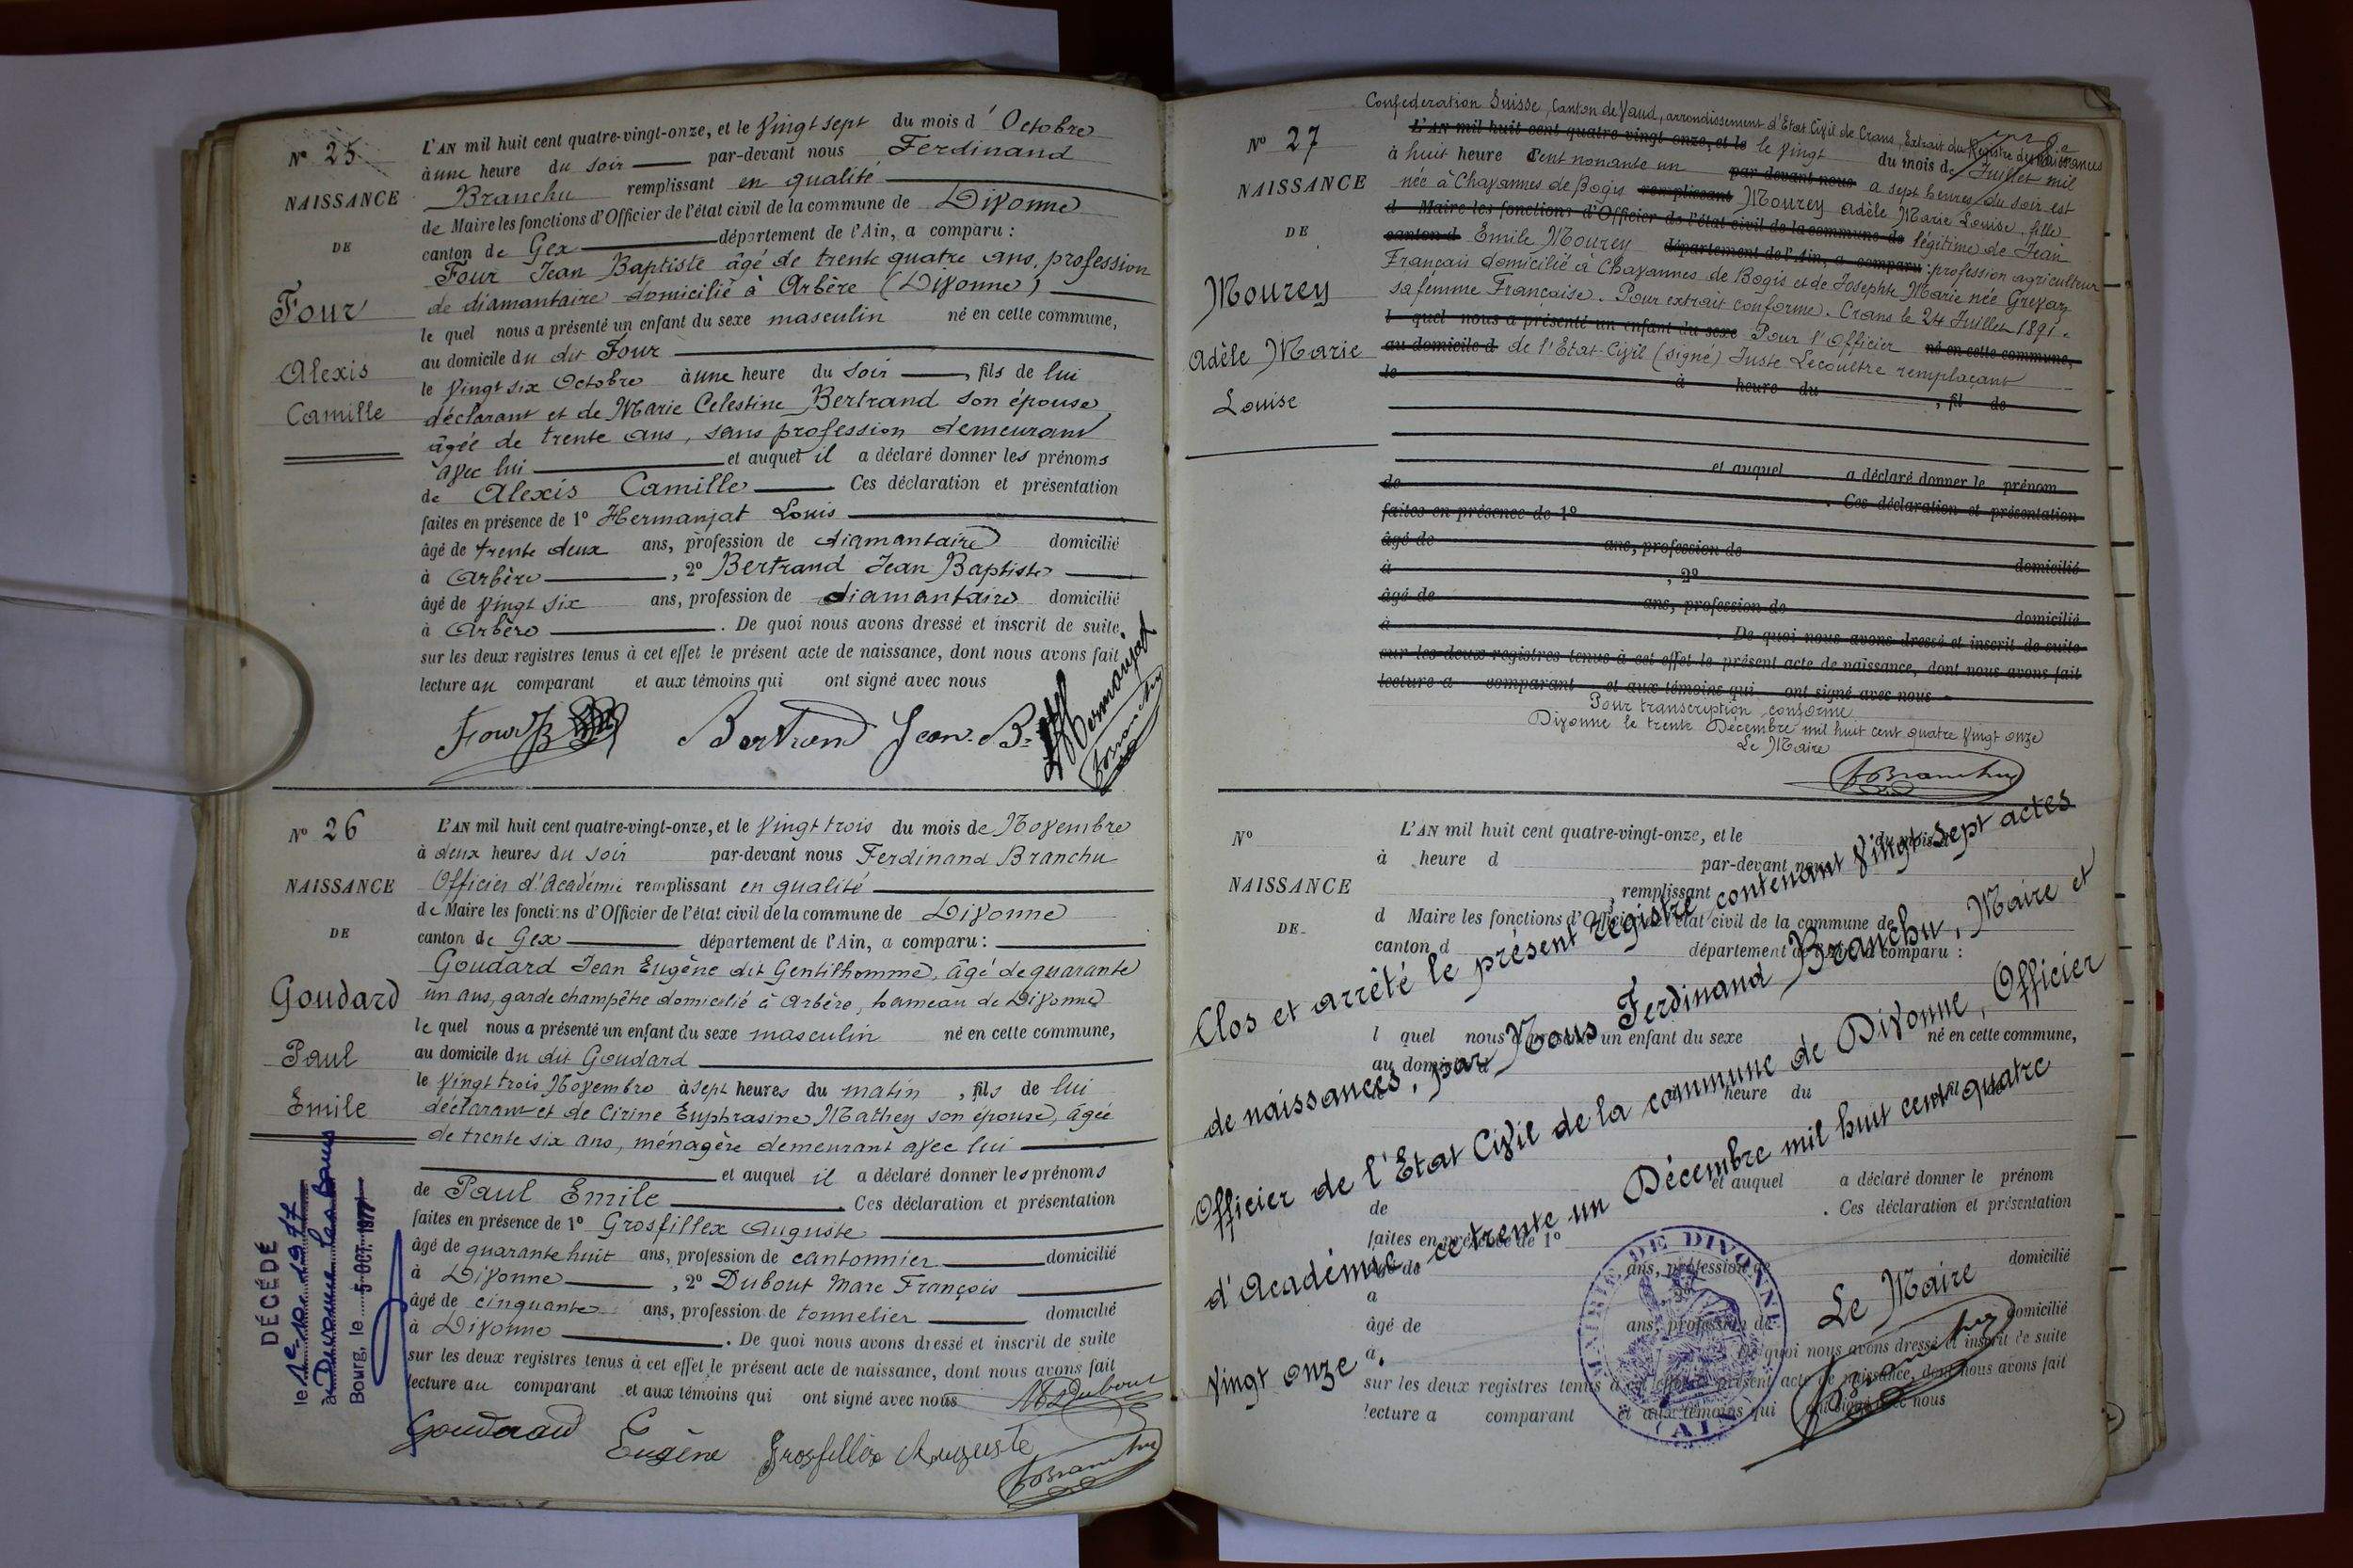 Nº 25
NAISSANCE
DE
Four
Alexis
Camille
L'AN mil huit cent quatre-vingt-onze, et le vingt sept du mois d' Octobre
à une heure du soir par-devant nous Ferdinand
Branchu remplissant en qualité
de Maire les fonctions d'Officier de l'état civil de la commune de Divonne
canton de Gex département de l'Ain, a comparu :
Four Jean Baptiste âgé de trente quatre ans, profession
de diamantaire domicilié à Arbère (Divonne)
le quel nous a présenté un enfant du sexe masculin né en cette commune,
au domicile du dit Four
le vingt six Octobre à une heure du soir , fils de lui
déclarant et de Marie Celestine Bertrand son épouse,
âgée de trente ans, sans profession demeurant
avec lui et auquel il a déclaré donner les prénoms
de Alexis Camille Ces déclaration et présentation
faites en présence de 1º Hermanjat Louis
âgé de trente deux ans, profession de diamantaire domicilié
à Arbère , 2º Bertrand Jean Baptiste
âgé de vingt six ans, profession de diamantaire domicilié
à Arbère . De quoi nous avons dressé et inscrit de suite
sur les deux registres tenus à cet effet le présent acte de naissance, dont nous avons fait
lecture au comparant et aux témoins qui ont signé avec nous
Four JB Bertrand Jean-B. Hermanjat
FBranchu
Nº 26
NAISSANCE
DE
Goudard
Paul
Emile
DÉCÉDÉ
le 1er 10 1977
à Divonne les Bains
Bourg, le 5 OCT. 1977
L'AN mil huit cent quatre-vingt-onze, et le vingt trois du mois de Novembre
à deux heures du soir par-devant nous Ferdinand Branchu
Officier d'Académie remplissant en qualité
de Maire les fonctions d'Officier de l'état civil de la commune de Divonne
canton de Gex département de l'Ain, a comparu :
Goudard Jean Eugène dit Gentilhomme, âgé de quarante
un ans, garde champêtre domicilié à Arbère, hameau de Divonne
le quel nous a présenté un enfant du sexe masculin né en cette commune,
au domicile du dit Goudard
le vingt trois Novembre à sept heures du matin , fils de lui
déclarant et de Cirine Euphrasine Mathey son épouse, âgée
de trente six ans, ménagère demeurant avec lui
et auquel il a déclaré donner les prénoms
de Paul Emile Ces déclaration et présentation
faites en présence de 1º Grosfillex Auguste
âgé de quarante huit ans, profession de cantonnier domicilié
à Divonne , 2º Dubout Marc François
âgé de cinquante ans, profession de tonnelier domicilié
à Divonne . De quoi nous avons dressé et inscrit de suite
sur les deux registres tenus à cet effet le présent acte de naissance, dont nous avons fait
lecture au comparant et aux témoins qui ont signé avec nous
Dubout
Goudard Eugène Grosfillex Auguste
FBranchu
Confédération Suisse, Canton de Vaud, arrondissement d'Etat Civil de Crans, Extrait du Registre des naissances
Nº 27
NAISSANCE
DE
Mourey
Adèle Marie
Louise
L'AN mil huit cent quatre-vingt-onze, et le le vingt du mois de Juillet mil
à huit heure cent nonante un par-devant nous a sept heures du soir est
née à Chavannes de Bogis remplissant Mourey Adèle Marie Louise, fille
d Maire les fonctions d'Officier de l'état civil de la commune de légitime de Jean
canton d Emile Mourey département de l'Ain, a comparu : profession agriculteur
Français domicilié à Chavannes de Bogis et de Josephte Marie née Grevaz
sa femme Française. Pour extrait conforme. Crans le 24 Juillet 1891.
l quel nous a présenté un enfant du sexe Pour l'Officier né en cette commune,
au domicile d de l'Etat-Civil (signé) Juste Lecoultre remplaçant
le à heure du , fil de
et auquel a déclaré donner le prénom
de . Ces déclaration et présentation
faites en présence de 1º
âgé de ans, profession de domicilié
à , 2º
âgé de ans, profession de domicilié
à . De quoi nous avons dressé et inscrit de suite
sur les deux registres tenus à cet effet le présent acte de naissance, dont nous avons fait
lecture a comparant et aux témoins qui ont signé avec nous
Pour transcription conforme
Divonne le trente Décembre mil huit cent quatre vingt onze
Le Maire
FBranchu
Nº
NAISSANCE
DE
L'AN mil huit cent quatre-vingt-onze, et le du mois d
à heure d par-devant nous
remplissant
d Maire les fonctions d'Officier de l'état civil de la commune de
canton d département de l'Ain, a comparu :
l quel nous a présenté un enfant du sexe né en cette commune,
au domicile d
heure du
et auquel a déclaré donner le prénom
de . Ces déclaration et présentation
faites en présence de 1º
âgé de ans, profession de domicilié
a , 2º
âgé de ans, profession de domicilié
à . De quoi nous avons dressé et inscrit de suite
sur les deux registres tenus à cet effet le présent acte de naissance, dont nous avons fait
lecture a comparant et aux témoins qui ont signé avec nous
Clos et arrêté le présent registre contenant vingt sept actes
de naissances, par Nous Ferdinand Branchu, Maire et
Officier de l'Etat Civil de la commune de Divonne, Officier
d'Académie, ce trente un Décembre mil huit cent quatre
vingt onze.
Le Maire
FBranchu
MAIRIE DE DIVONNE
(AIN)